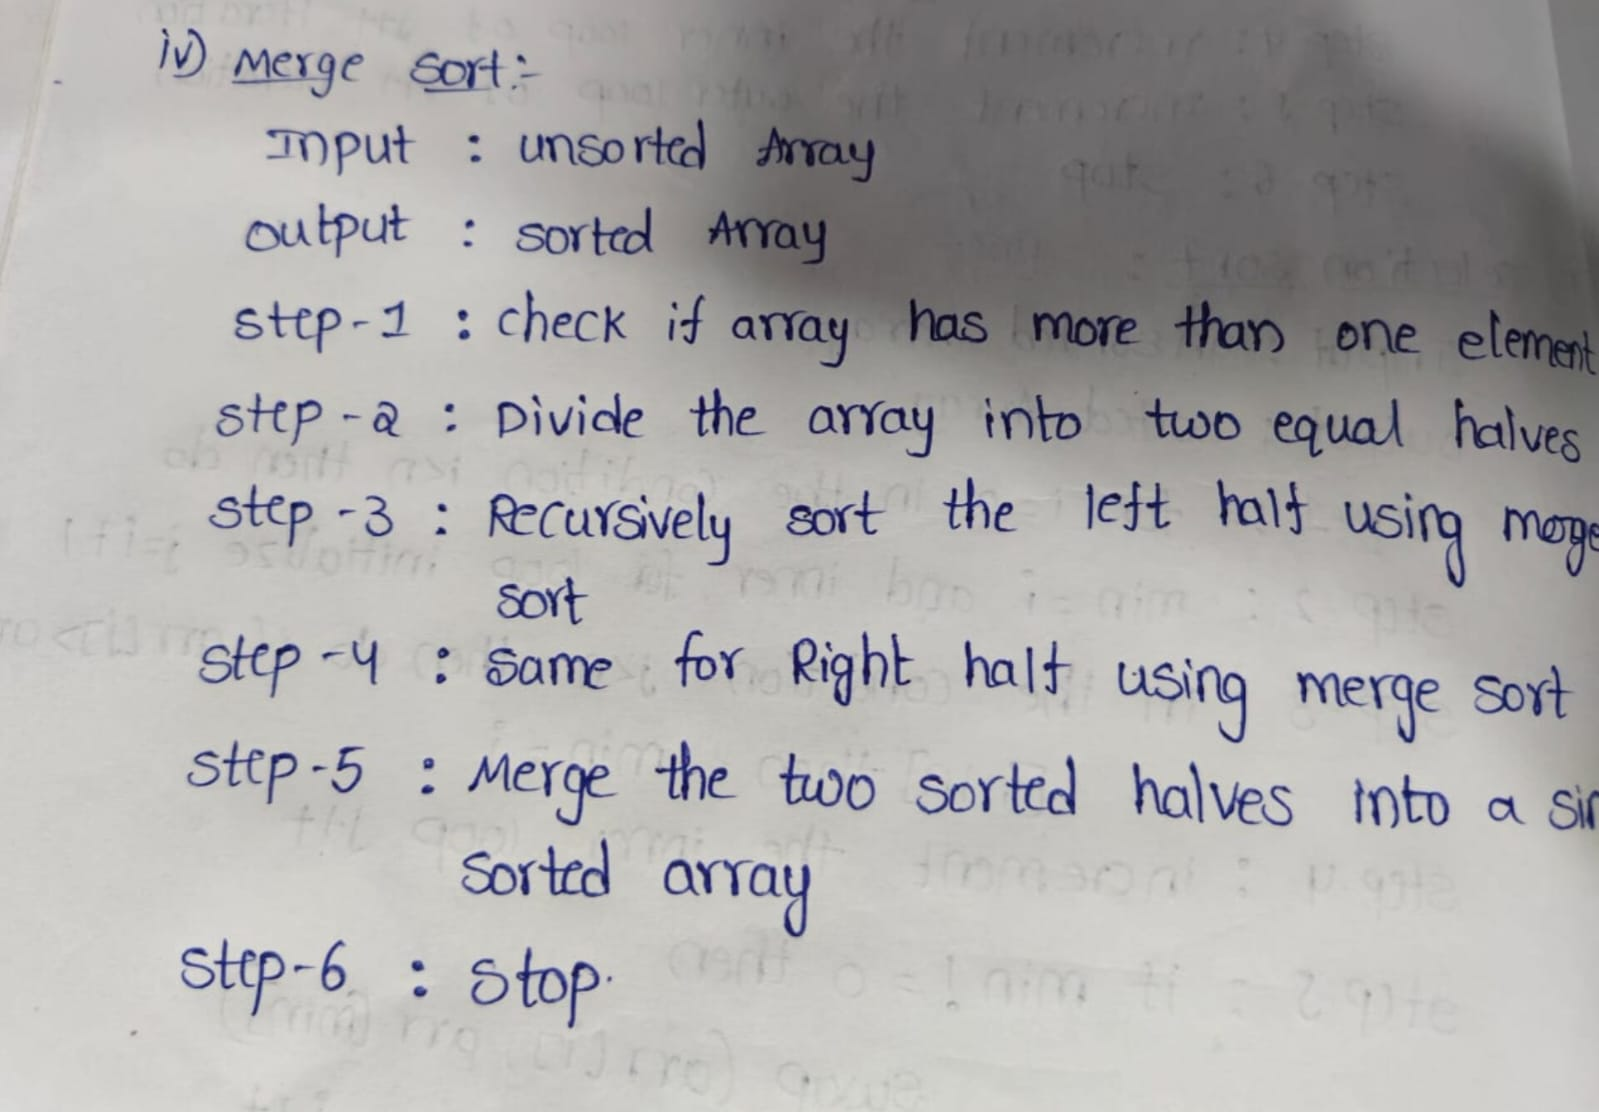 iv) Merge Sort:-
Input : unsorted Array
output : sorted Array
step-1 : check if array has more than one element
step-2 : Divide the array into two equal halves
step-3 : Recursively sort the left half using merge
sort
step-4 : Same for Right half using merge sort
step-5 : Merge the two sorted halves into a
sorted array
step-6 : Stop.